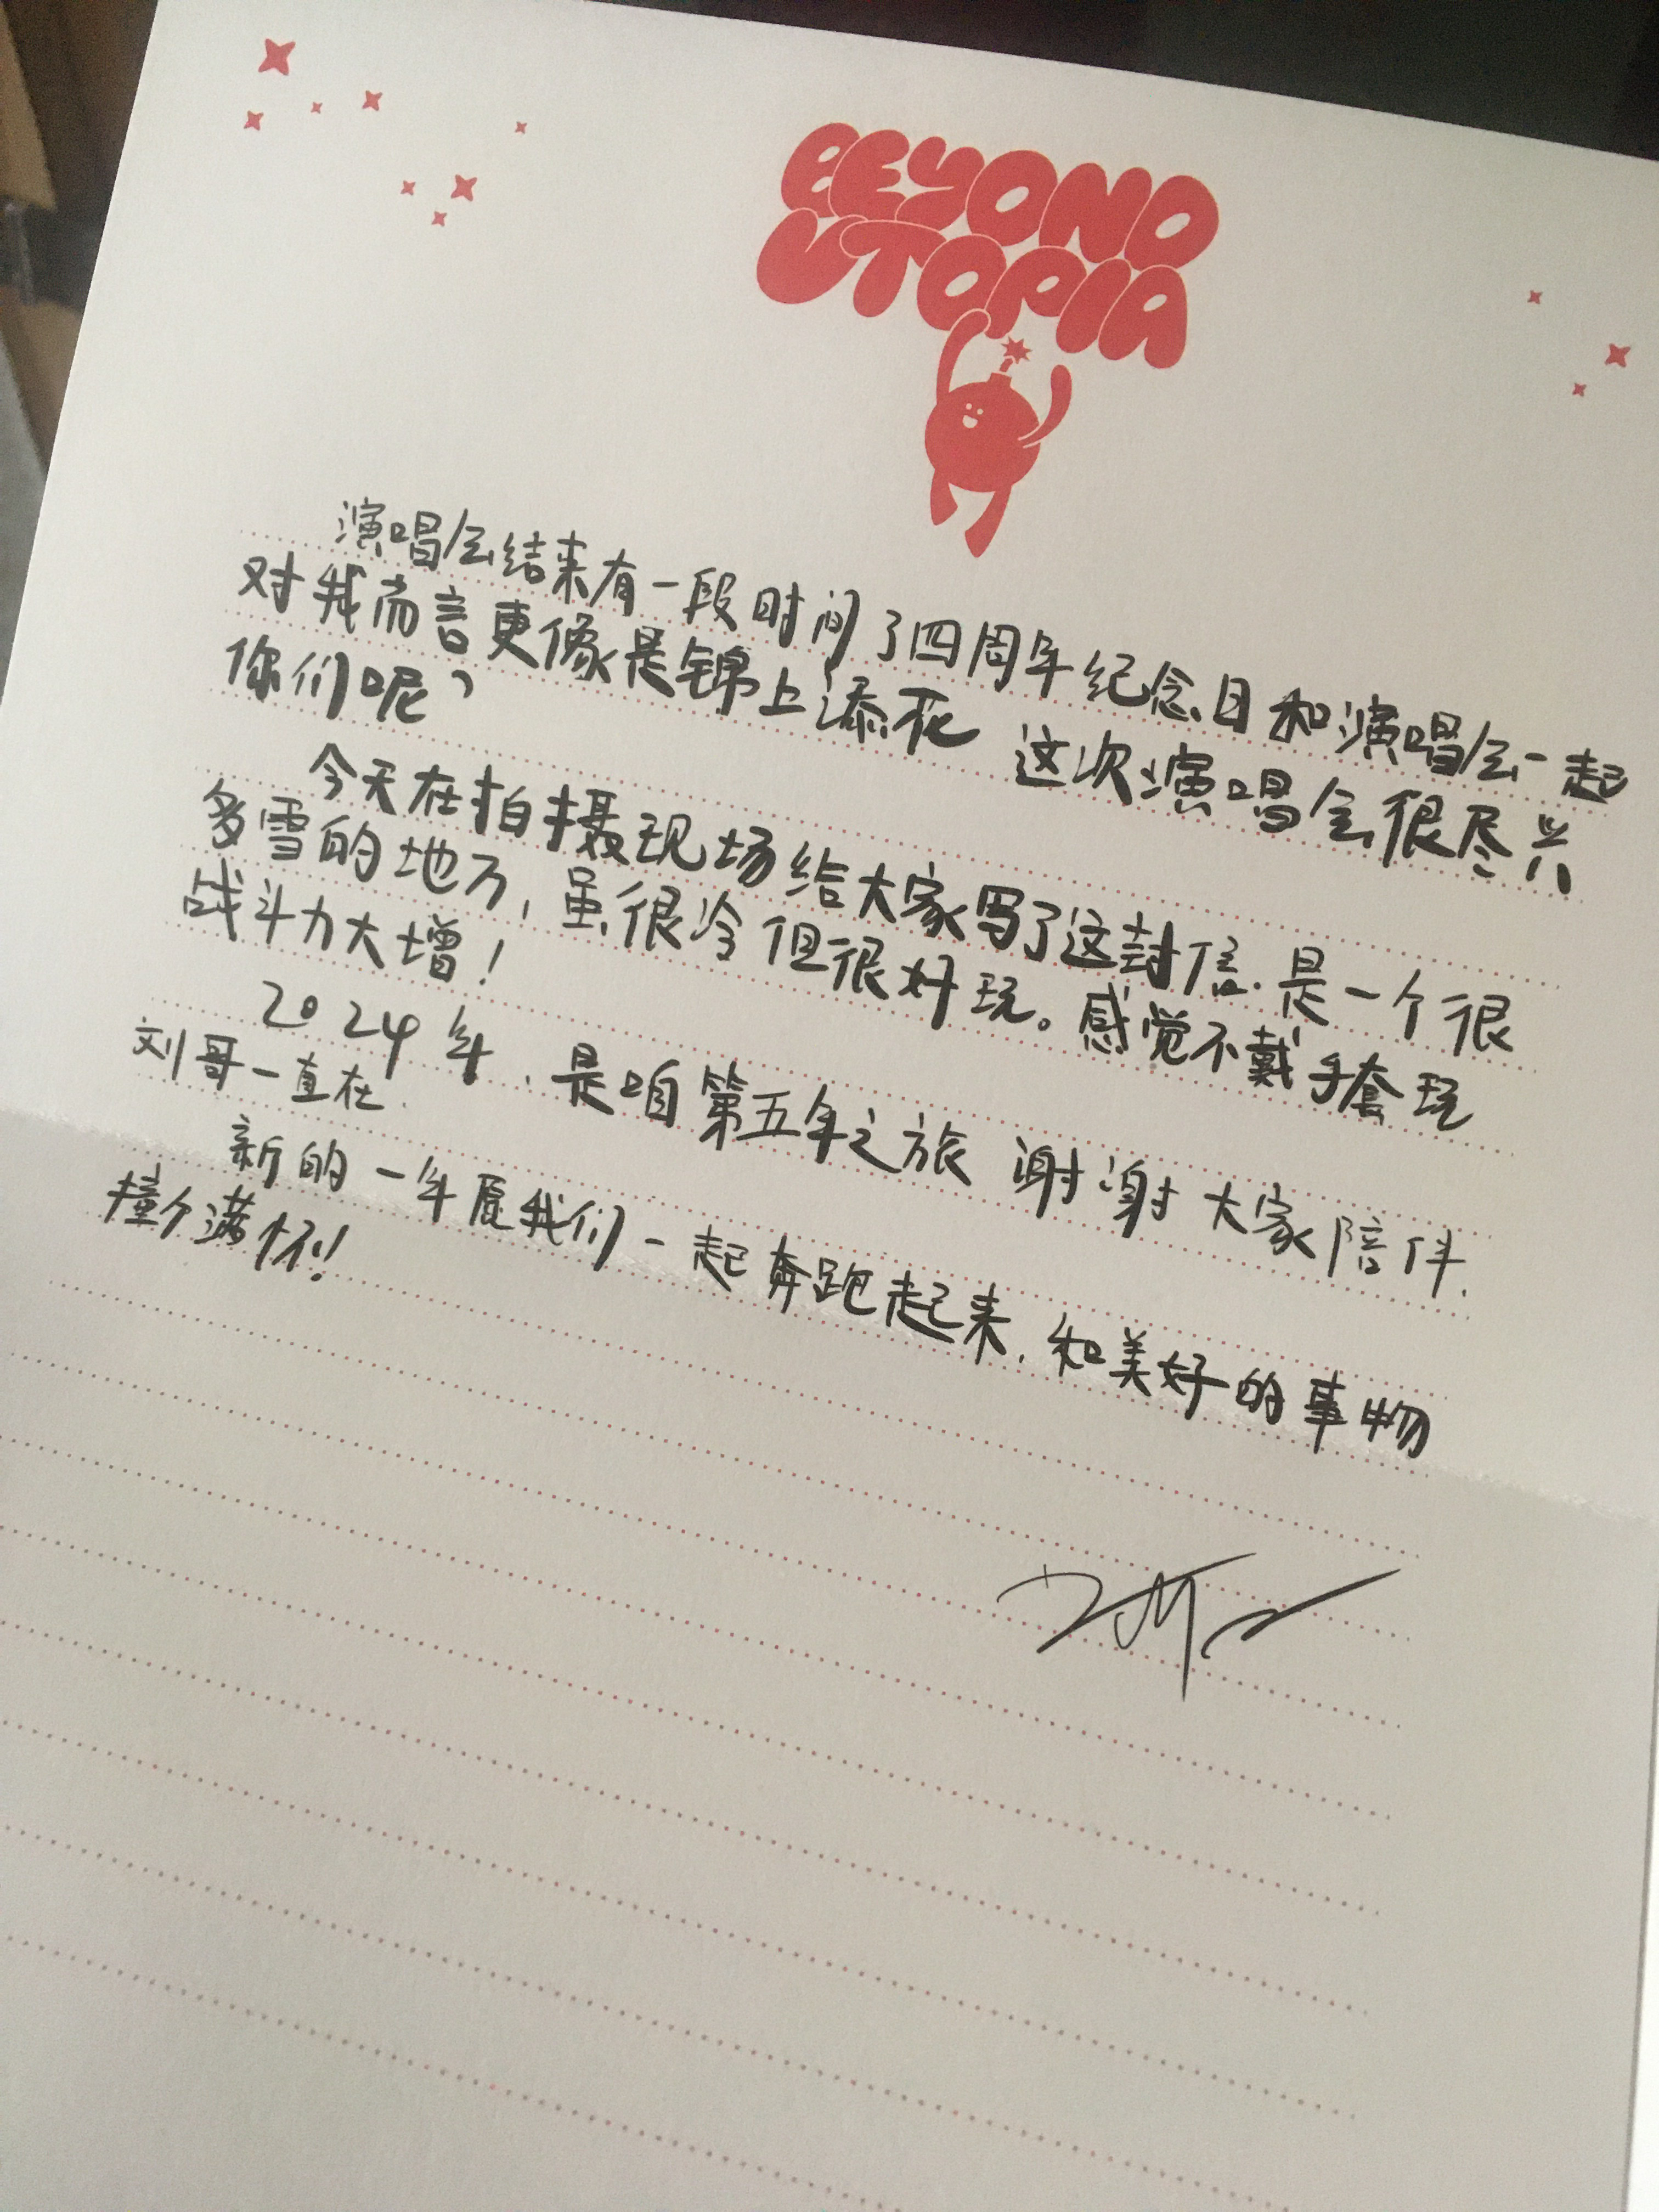 BEYOND
UTOPIA
演唱会结束有一段时间了四周年纪念日和演唱会一起
对我而言更像是锦上添花 这次演唱会很尽兴
你们呢?
今天在拍摄现场给大家写了这封信.是一个很
多雪的地方,虽很冷但很好玩。感觉不戴手套玩
战斗力大增!
2024年.是咱第五年之旅 谢谢大家陪伴.
刘哥一直在.
新的一年愿我们一起奔跑起来.和美好的事物
撞个满怀!